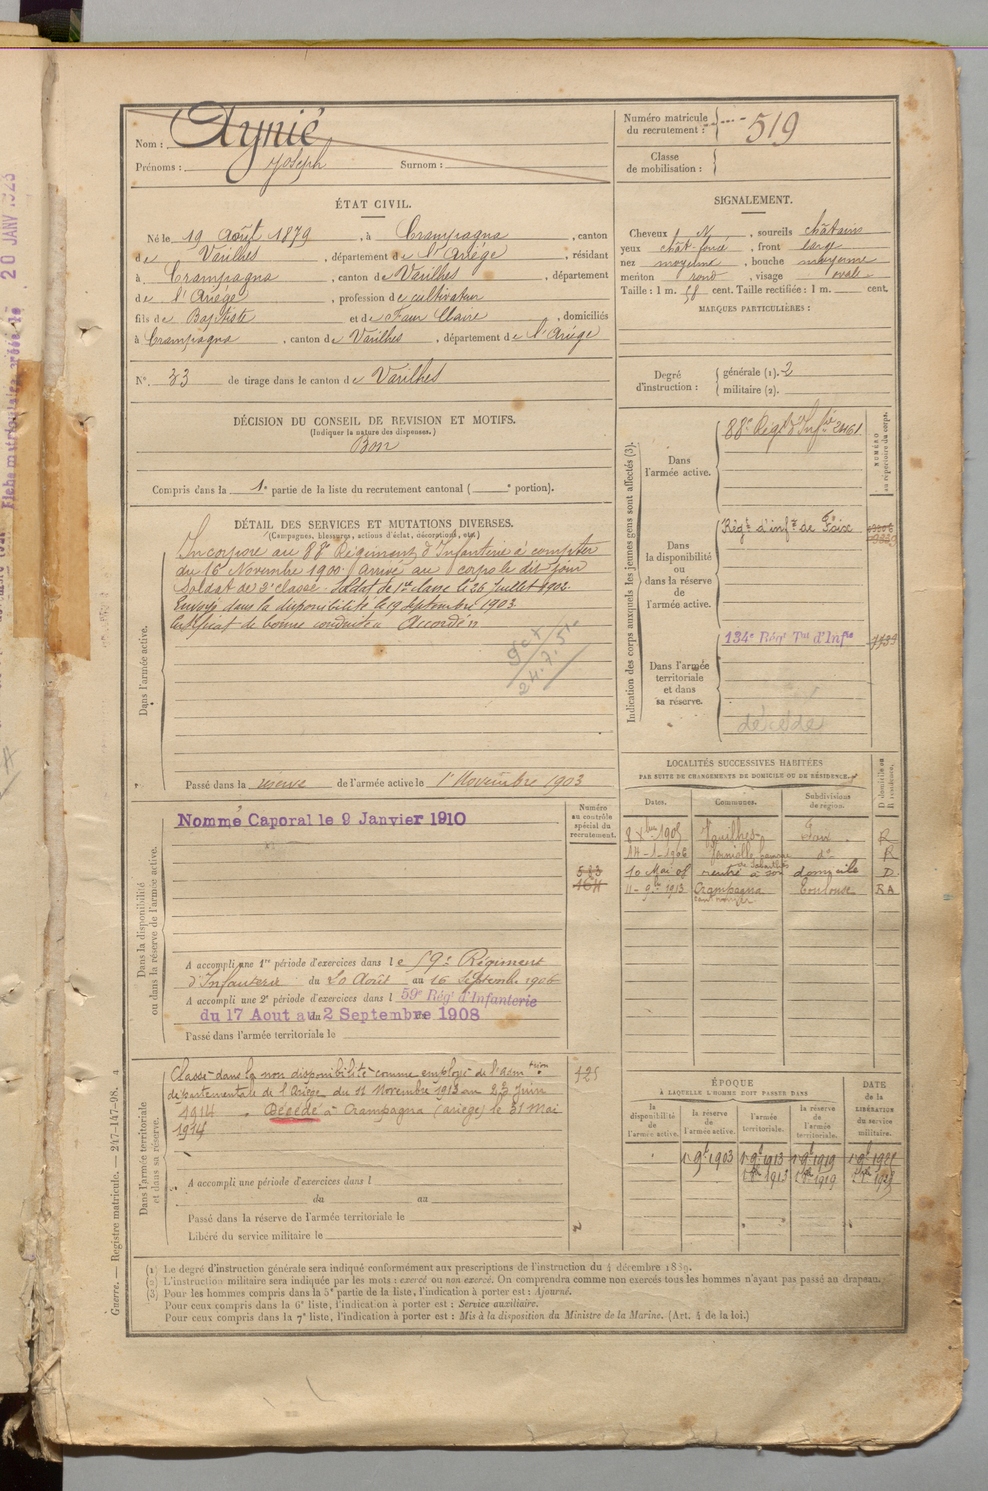 Nom : Aynié
Prénoms : Joseph Surnom :
Numéro matricule du recrutement : 519
Classe de mobilisation :
ÉTAT CIVIL.
Né le 19 Août 1879, à Crampagna, canton
de Varilhes, département de l'Ariège, résidant
à Crampagna, canton de Varilhes, département
de l'Ariège, profession de cultivateur
fils de Baptiste et de Faur Claire, domiciliés
à Crampagna, canton de Varilhes, département de l'Ariège
N° 33 de tirage dans le canton de Varilhes
SIGNALEMENT.
Cheveux N, sourcils châtains
yeux chât. foncé, front large
nez moyenne, bouche moyenne
menton rond, visage ovale
Taille : 1 m. 58 cent. Taille rectifiée : 1 m. cent.
MARQUES PARTICULIÈRES :
Degré d'instruction : générale (1). 2
militaire (2).
DÉCISION DU CONSEIL DE REVISION ET MOTIFS.
(Indiquer la nature des dispenses.)
Bon
Compris dans la 1e partie de la liste du recrutement cantonal ( e portion).
DÉTAIL DES SERVICES ET MUTATIONS DIVERSES.
(Campagnes, blessures, actions d'éclat, décorations, etc.)
Dans l'armée active.
Incorporé au 88e Régiment d'Infanterie à compter
du 16 Novembre 1900. Arrivé au corps le dit jour
Soldat de 2e classe. Soldat de 1re classe le 26 Juillet 1902.
Envoyé dans la disponibilité le 19 Septembre 1903.
Certificat de bonne conduite "Accordé"
Passé dans la réserve de l'armée active le 1er Novembre 1903
Indication des corps auxquels les jeunes gens sont affectés (3).
NUMÉRO au répertoire du corps.
Dans l'armée active.
88e Régt d'Infie 2461
Dans la disponibilité ou dans la réserve de l'armée active.
Régt d'infie de Foix
Dans l'armée territoriale et dans sa réserve.
134e Régt Tal d'Infie
décédé
LOCALITÉS SUCCESSIVES HABITÉES
PAR SUITE DE CHANGEMENTS DE DOMICILE OU DE RÉSIDENCE.
Dates. Communes. Subdivisions de région. D domicile ou R résidence.
8 Xbre 1905 Varilhes Foix R
14-1-1906 do R
10 Mai 08 rentré à son domicile D
11-9bre 1913 Crampagna Toulouse RA
Dans la disponibilité ou dans la réserve de l'armée active.
Nommé Caporal le 9 Janvier 1910
Numéro au contrôle spécial du recrutement.
513
164
A accompli une 1re période d'exercices dans le 59e Régiment
d'Infanterie du 20 Août au 16 Septembre 1906
A accompli une 2e période d'exercices dans l 59e Régt d'Infanterie
du 17 Aout au 2 Septembre 1908
Passé dans l'armée territoriale le
Dans l'armée territoriale et dans sa réserve.
Classé dans la non disponibilité comme employé de l'admtion
départementale de l'Ariège du 11 Novembre 1913 au 23 Juin
1914. Décédé à Crampagna (ariège) le 31 Mai
1914
A accompli une période d'exercices dans l
du au
Passé dans la réserve de l'armée territoriale le
Libéré du service militaire le
ÉPOQUE
À LAQUELLE L'HOMME DOIT PASSER DANS
la disponibilité de l'armée active. la réserve de l'armée active. l'armée territoriale. la réserve de l'armée territoriale.
DATE de la LIBÉRATION du service militaire.
1r 9bre 1903 1r 9bre 1913 1r 9bre 1919
(1) Le degré d'instruction générale sera indiqué conformément aux prescriptions de l'instruction du 4 décembre 1889.
(2) L'instruction militaire sera indiquée par les mots : exercé ou non exercé. On comprendra comme non exercés tous les hommes n'ayant pas passé au drapeau.
(3) Pour les hommes compris dans la 5e partie de la liste, l'indication à porter est : Ajourné.
Pour ceux compris dans la 6e liste, l'indication à porter est : Service auxiliaire.
Pour ceux compris dans la 7e liste, l'indication à porter est : Mis à la disposition du Ministre de la Marine. (Art. 4 de la loi.)
Guerre. — Registre matricule. — 247-147-98.
20 JANV 1923